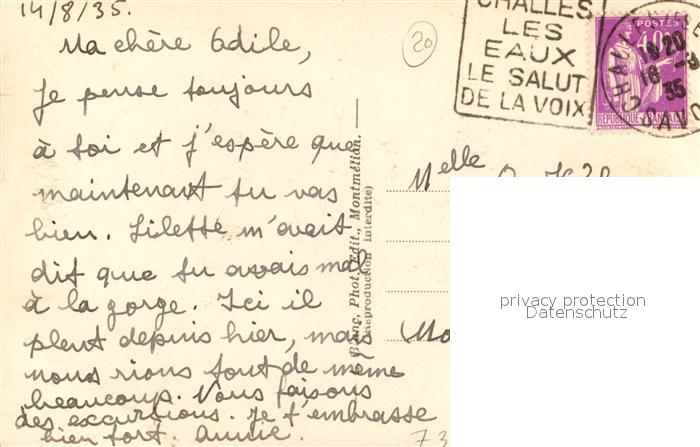 14/8/35.
Ma chère Odile,
Je pense toujours
à toi et j'espère que
maintenant tu vas
bien. Lilette m'avait
dit que tu avais mal
à la gorge. Ici il
pleut depuis hier, mais
nous rions tout de même
beaucoup. Nous faisons
des excursions. Je t'embrasse
bien fort. Annie.
20
CHALLES
LES
EAUX
LE SALUT
DE LA VOIX
POSTES
REPUBLIQUE FRANÇAISE
35
Blanc, Phot. Edit., Montmélian.
(Reproduction interdite)
Melle
privacy protection
Datenschutz
73